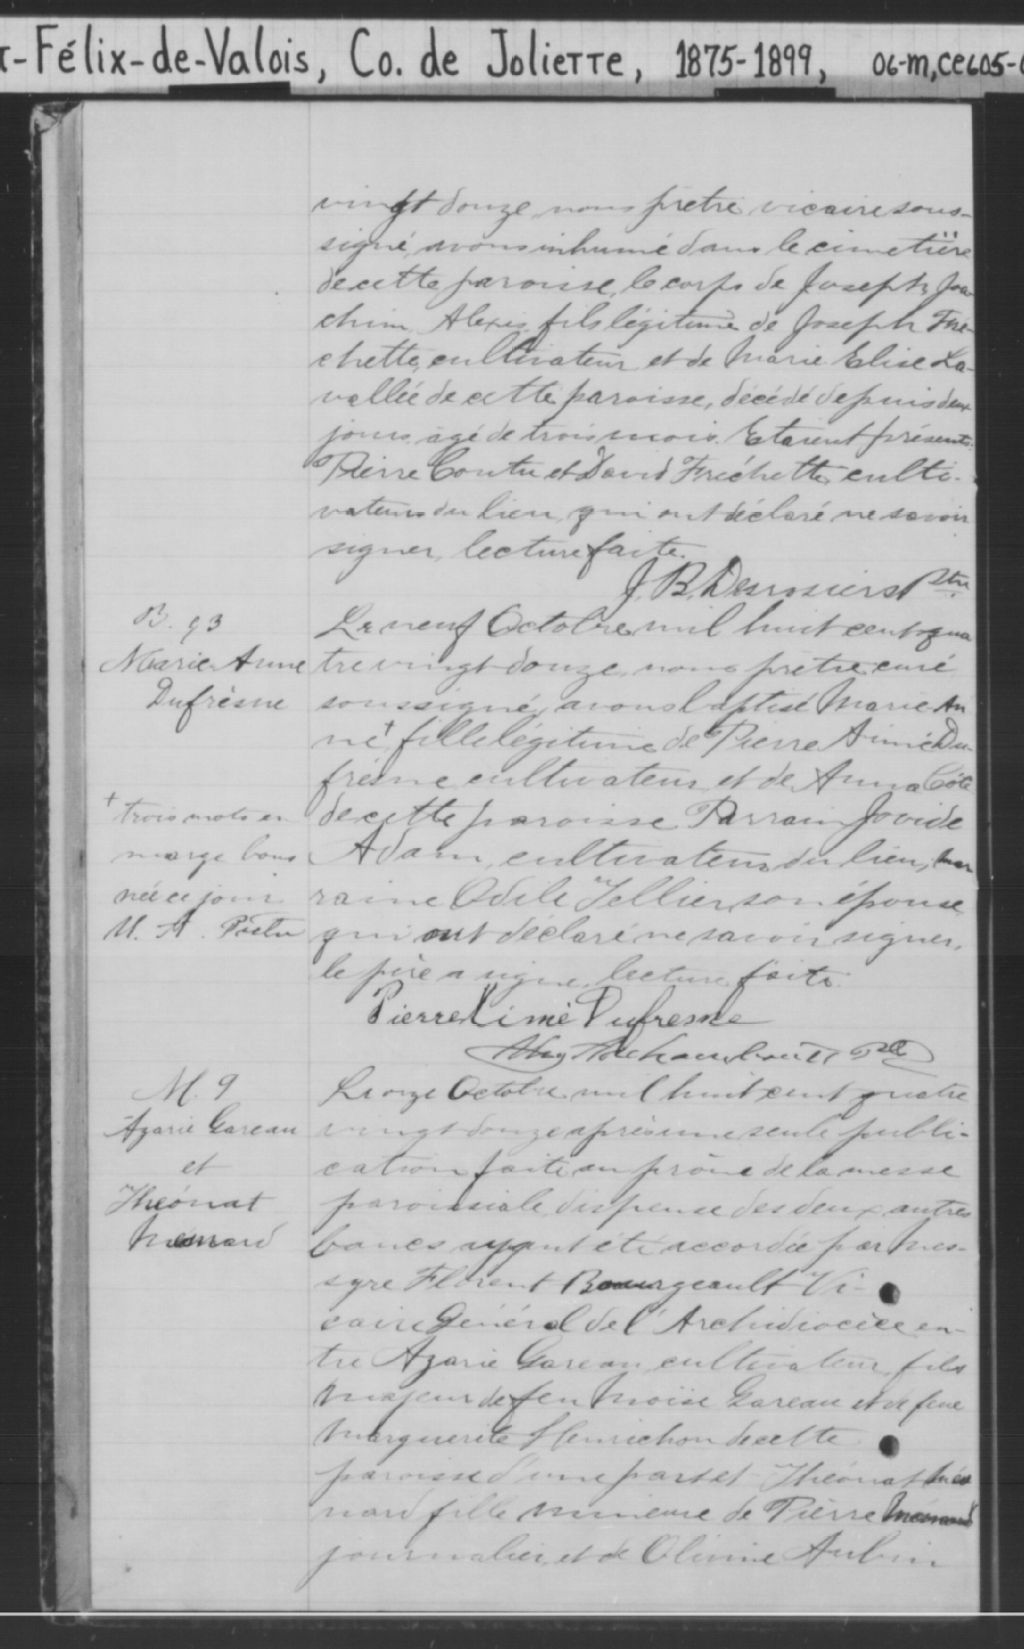 -Félix-de-Valois, Co. de Joliette, 1875-1899, 06-m,ce605-
vingt douze, nous prêtre vicaire sous-
signé, avons inhumé dans le cimetière
de cette paroisse, le corps de Joseph Joa-
chim Alexis fils légitime de Joseph Fré-
chette, cultivateur et de Marie Elise La-
vallée de cette paroisse, décédé depuis deux
jours, agé de trois mois. Etaient présents:
Pierre Coutu et David Fréchette, culti-
vateurs du lieu, qui ont déclaré ne savoir
signer, lecture faite.
J. B. Desrosiers Ptre
B. 93
Marie Anne
Dufrèsne
Le neuf Octobre mil huit cent qua
tre vingt-douze, nous prêtre curé
soussigné, avons baptisé Marie An
ne + fille légitime de Pierre Aimé Du-
frèsne cultivateur et de Anna Côté
de cette paroisse Parrain Jovide
Adam, cultivateur du lieu, mar
raine Odile Tellier, son épouse
qui ont déclaré ne savoir signer,
le père a signé, lecture faite.
+ trois mots en
marge bons
née ce jour
U. A. Prêtre
Pierre Aimé Dufresne
Archambault Ptre
M. 9
Azarie Gareau
et
Théonat
Ménard
Le onze Octobre mil huit cent quatre
vingt-douze après une seule publi-
cation faite au prône de la messe
paroissiale, dispense des deux autres
bancs ayant été accordée par Mes-
syre Florent Bourgeault Vi-
caire Général de l'Archidiocèse en-
tre Azarie Gareau, cultivateur, fils
majeur de feu Moïse Gareau et de feue
Marguerite Henrichon de cette
paroisse d'une part et Théonat Mé
nard fille mineure de Pierre Ménard
journalier, et de Olivine Aubin